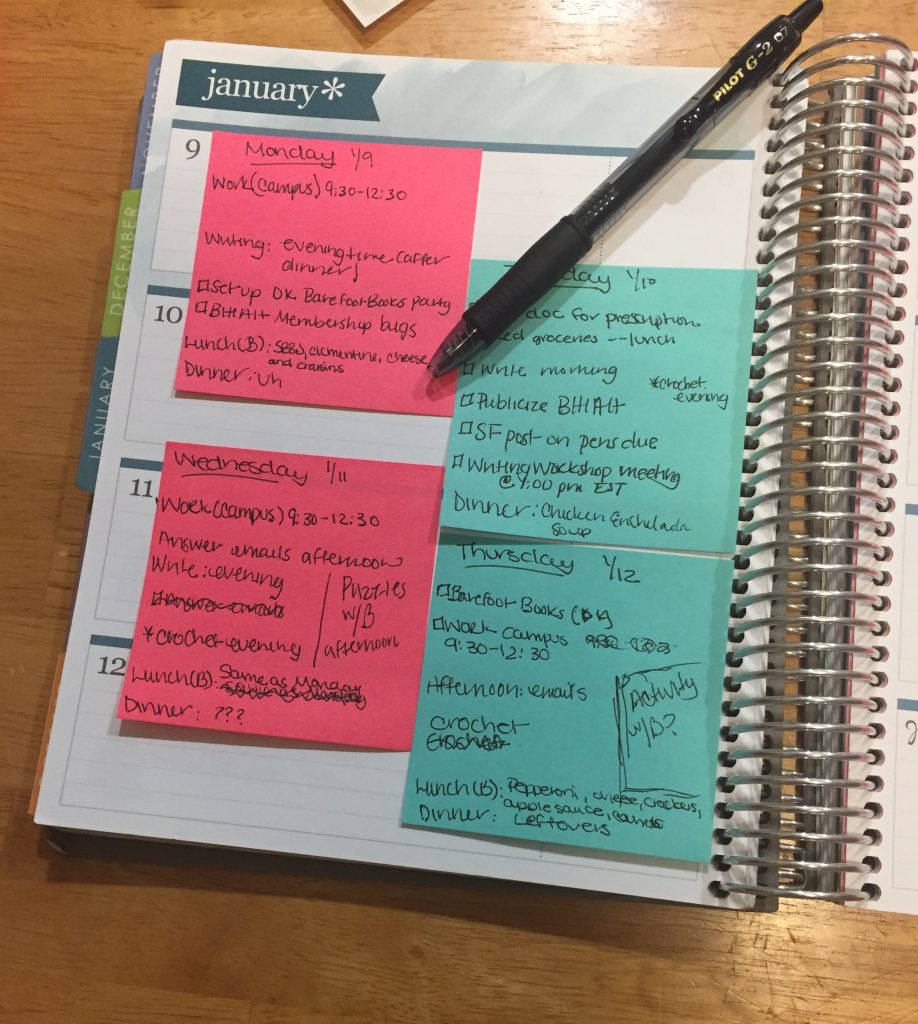 january*
NOVEMBER
DECEMBER
JANUARY
PILOT G-2 07
9
10
11
12
Monday 1/9
Work (campus) 9:30-12:30
Writing: evening time (after
dinner)
Set up DK Barefoot Books party
Membership bugs
Lunch(B): clementine, cheese
and craisins
Dinner: uh
day 1/10
doc for prescription
groceries -- lunch
Write morning
*crochet
evening
Publicize
SF post on pens due
Writing Workshop meeting
@ 9:00 pm EST
Dinner: Chicken Enchelada
Soup
Wednesday 1/11
Work (campus) 9:30-12:30
Answer emails afternoon
Write: evening
Answer emails
*crochet-evening
Puzzles
w/B
afternoon
Lunch(B): Same as Monday
Dinner: ???
Thursday 1/12
Barefoot Books
Work campus
9:30-12:30
Afternoon: emails
Activity
w/B?
crochet
Lunch(B): Pepperoni, cheese, crackers,
applesauce,
Dinner: Leftovers